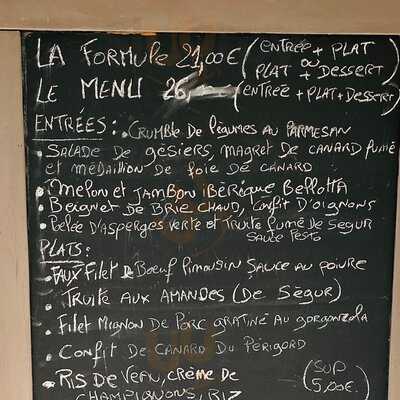 LA FORMULE 21,00€ (ENTRÉE + PLAT
OU
PLAT + DESSERT)
LE MENU 26, (ENTRÉE + PLAT + DESSERT)
ENTRÉES : • CRUMBLE DE LÉGUMES AU PARMESAN
• SALADE DE GÉSIERS, MAGRET DE CANARD FUMÉ
ET MÉDAILLON DE FOIE DE CANARD
• MELON ET JAMBON IBÉRIQUE BELLOTTA
• BEIGNET DE BRIE CHAUD, CONFIT D'OIGNONS
• GELÉE D'ASPERGES VERTE ET TRUITE FUMÉ DE SEGUR
SAUCE PESTO
PLATS :
• FAUX FILET DE BOEUF LIMOUSIN SAUCE AU POIVRE
• TRUITE AUX AMANDES (DE SÈGUR)
• FILET MIGNON DE PORC GRATINÉ AU GORGONZOLA
• CONFIT DE CANARD DU PÉRIGORD
• RIS DE VEAU, CRÈME DE (SUP
5,00€.)
CHAMPIGNONS, RIZ